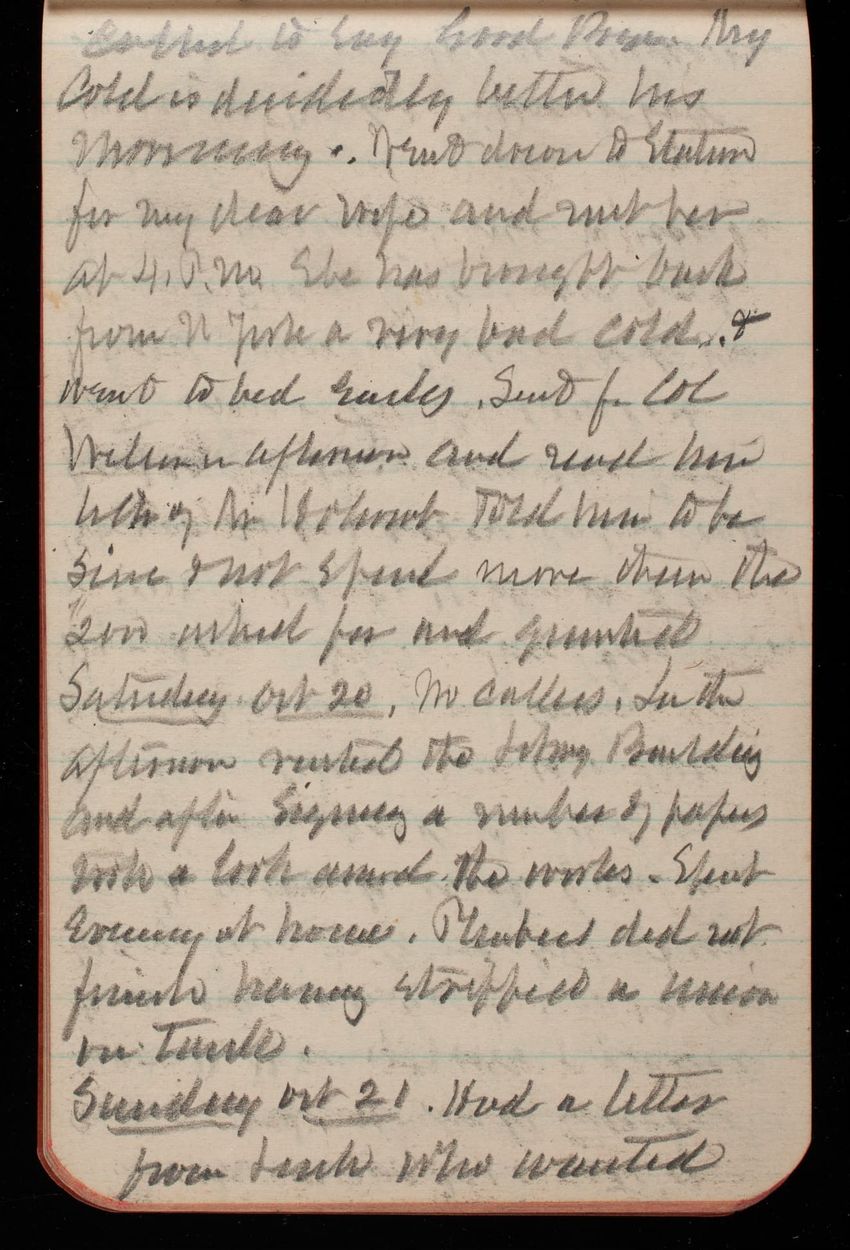 Called to say Good Bye. My
Cold is decidedly better this
morning. Went down to Station
for my dear wife and met her
at 4, P.M. She has brought back
from N York a very bad cold. &
went to bed early. Sent f. Col
Wilson in afternoon and read him
letter of Mr Told him to be
sure & not spend more than the
200 asked for and granted
Saturday Oct 20, No callers. In the
afternoon visited the Library Building
and after signing a number of papers
took a look around the works. Spent
Evening at home. Plumbers did not
finish having stripped a union
on Tank.
Sunday Oct 21. Had a letter
from who wanted